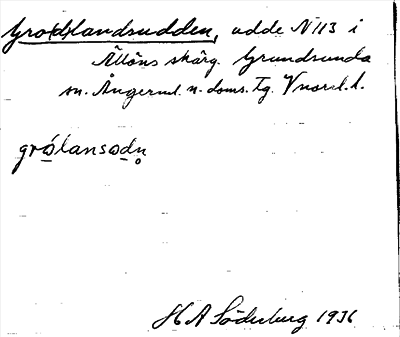 Gro(d)landsudden, udde N 113 i
skärg. Grundsunda
sn. Ångerml. n. doms. tg. Vnorrl. l.
grólansodn̥
H A Söderberg 1936